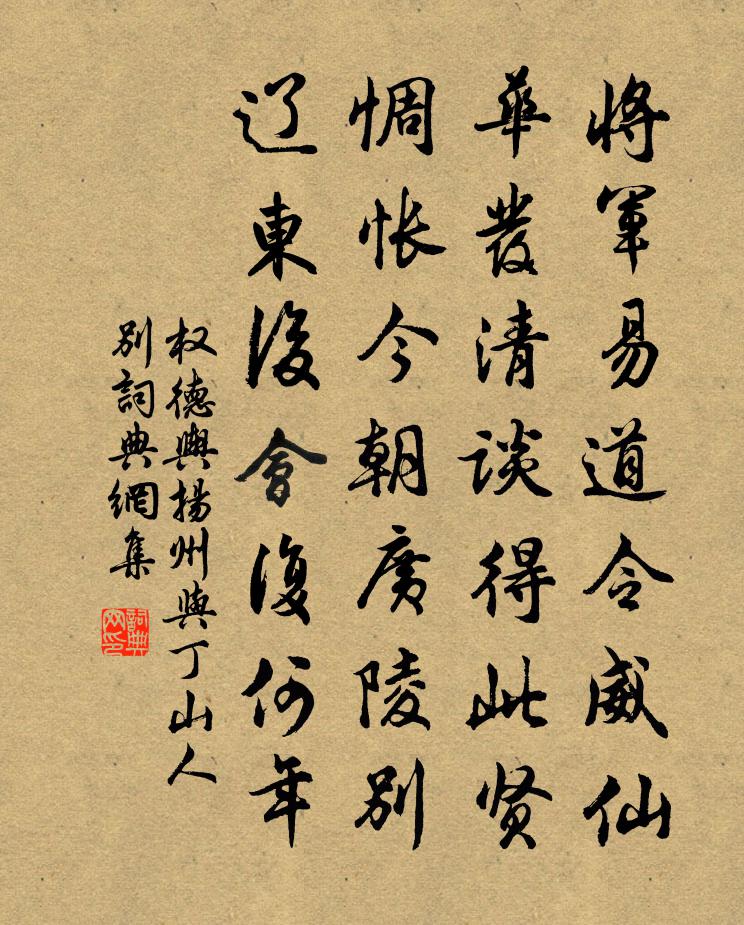 將軍易道令威仙
華發清談得此贤
惆怅今朝廣陵別
辽東後會復何年
权德輿揚州與丁山人
別詞典網集
詞典网印